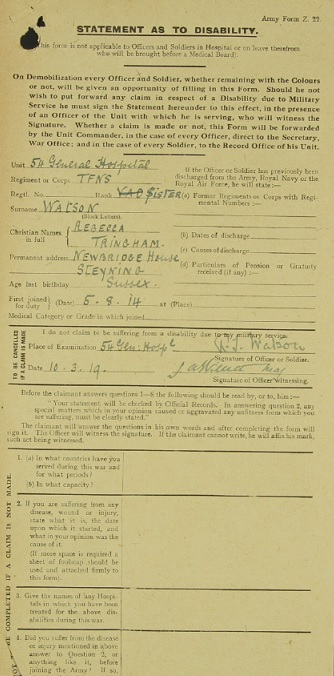 Army Form Z. 22.
STATEMENT AS TO DISABILITY.
(This form is not applicable to Officers and Soldiers in Hospital or on leave therefrom
who will be brought before a Medical Board).
On Demobilization every Officer and Soldier, whether remaining with the Colours
or not, will be given an opportunity of filling in this Form. Should he not
wish to put forward any claim in respect of a Disability due to Military
Service he must sign the Statement hereunder to this effect, in the presence
of an Officer of the Unit with which he is serving, who will witness the
Signature. Whether a claim is made or not, this Form will be forwarded
by the Unit Commander, in the case of every Officer, direct to the Secretary,
War Office; and in the case of every Soldier, to the Record Office of his Unit.
Unit 54 General Hospital
Regiment or Corps TFNS
Regtl. No. Rank VAD SISTER
Surname WATSON
(Block Letters).
Christian Names in full REBECCA
TRINGHAM.
Permanent address NEWBRIDGE HOUSE
STEYNING
Age last birthday SUSSEX.
First joined for duty (Date) 5-8-14 at (Place)
Medical Category or Grade in which joined
If the Officer or Soldier has previously been
discharged from the Army, Royal Navy or the
Royal Air Force, he will state:—
(a) Former Regiments or Corps with Regi-
mental Numbers :—
(b) Dates of discharge
(c) Causes of discharge
(d) Particulars of Pension or Gratuity
received (if any) :—
TO BE CANCELLED IF A CLAIM IS MADE
I do not claim to be suffering from a disability due to my military service.
Place of Examination 54 Gen. Hospl R. T. Watson
Signature of Officer or Soldier.
Date 10-3-19.
Signature of Officer Witnessing.
Before the claimant answers questions 1—6 the following should be read by, or to, him :—
"Your statement will be checked by Official Records. In answering question 2, any
special matters which in your opinion caused or aggravated any unfitness from which you
are suffering, must be clearly stated."
The claimant will answer the questions in his own words and after completing the form will
sign it. The Officer will witness the signature. If the claimant cannot write, he will affix his mark,
such act being witnessed.
1. (a) In what countries have you
served during this war and
for what periods?
(b) In what capacity?
2. If you are suffering from any
disease, wound or injury,
state what it is, the date
upon which it started, and
what in your opinion was the
cause of it.
(If more space is required a
sheet of foolscap should be
used and attached firmly to
this form).
3. Give the names of any Hospi-
tals in which you have been
treated for the above dis-
abilities during this war.
4. Did you suffer from the disease
or injury mentioned in above
answer to Question 2, or
anything like it, before
joining the Army? If so,
COMPLETED IF A CLAIM IS NOT MADE.